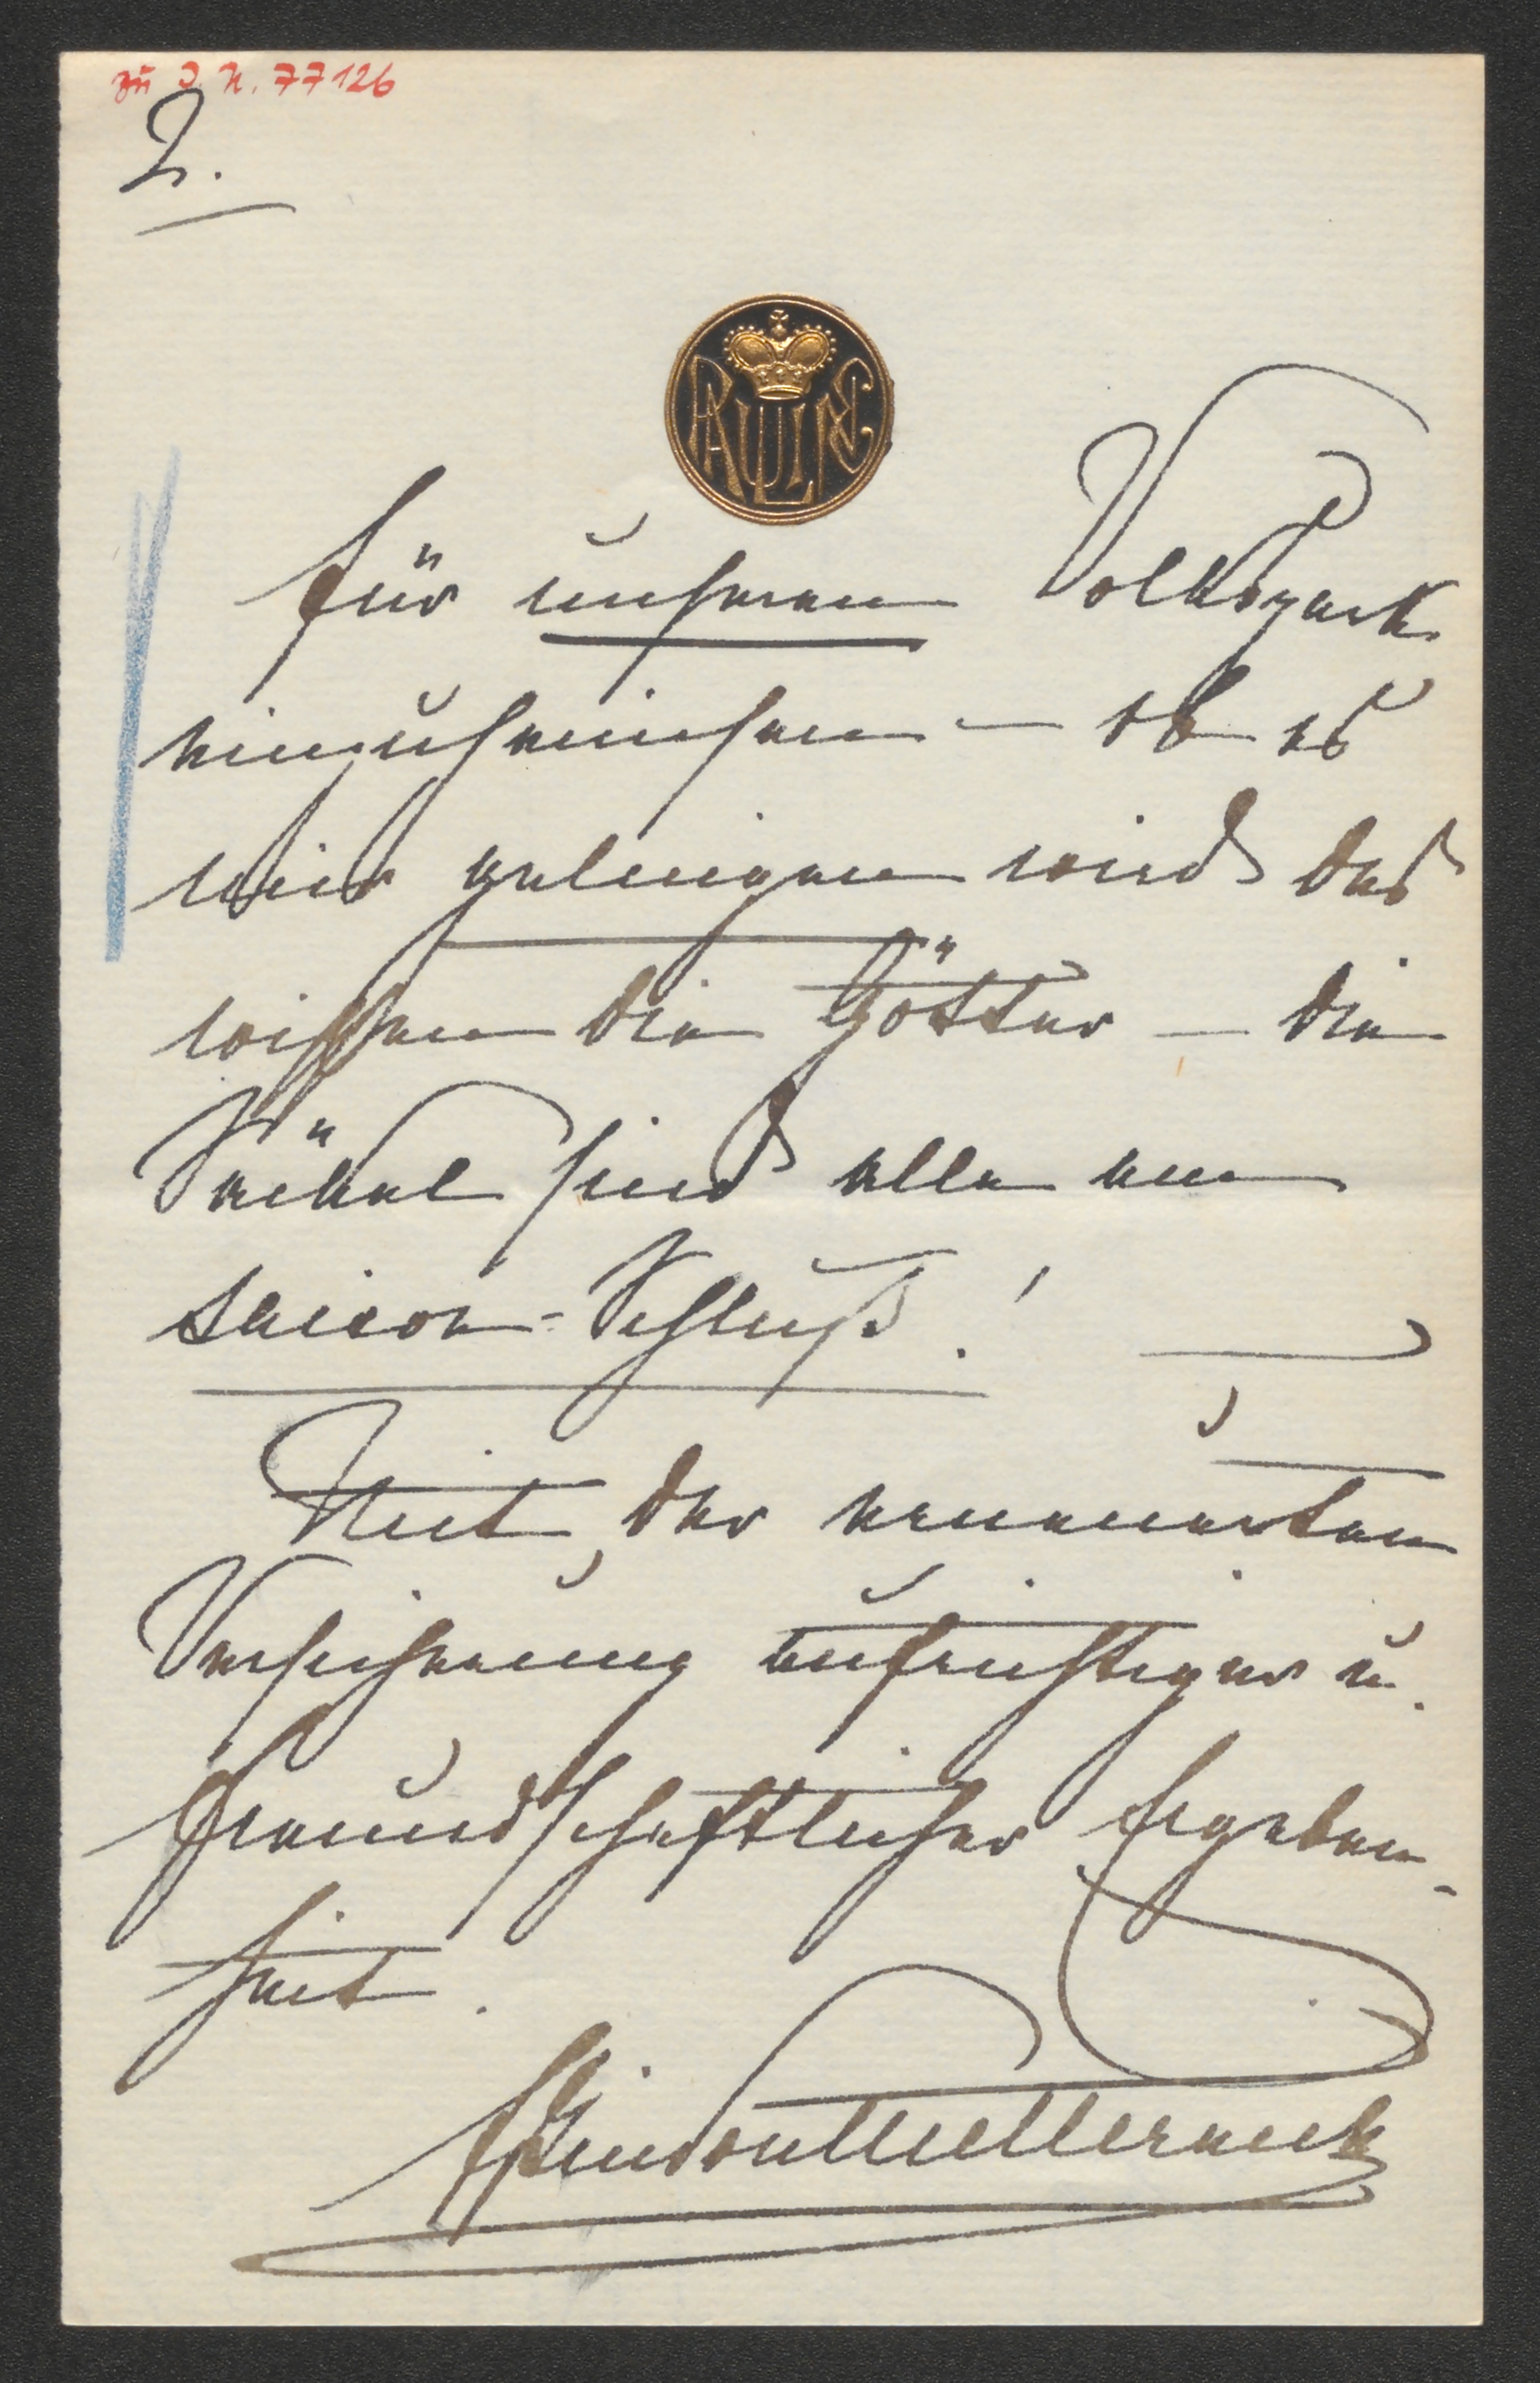 zu I.N. 77126
2.
PAULINE
für unseren Volkspark
einzuheimsen — ob es
mir gelingen wird das
wissen die Götter — die
Säckel sind alle am
saison-Schluß!
Mit der erneuerten
Versicherung aufrichtiger u.
freundschaftlicher Ergeben-
heit.